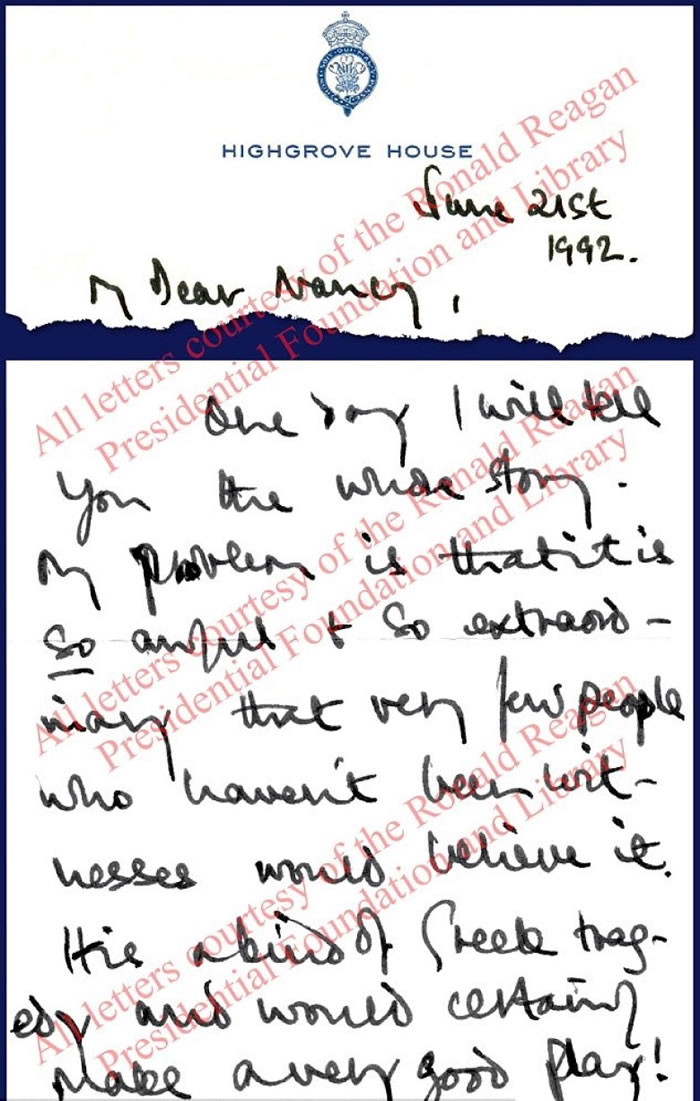 HIGHGROVE HOUSE
June 21st
1992.
My Dear Nancy,
One day I will tell
you the whole story.
My problem is that it is
so awful + so extraord-
inary that very few people
who haven't been wit-
nesses would believe it.
It is a kind of Greek trag-
edy and would certainly
make a very good play!
All letters courtesy of the Ronald Reagan
Presidential Foundation and Library
All letters courtesy of the Ronald Reagan
Presidential Foundation and Library
All letters courtesy of the Ronald Reagan
Presidential Foundation and Library